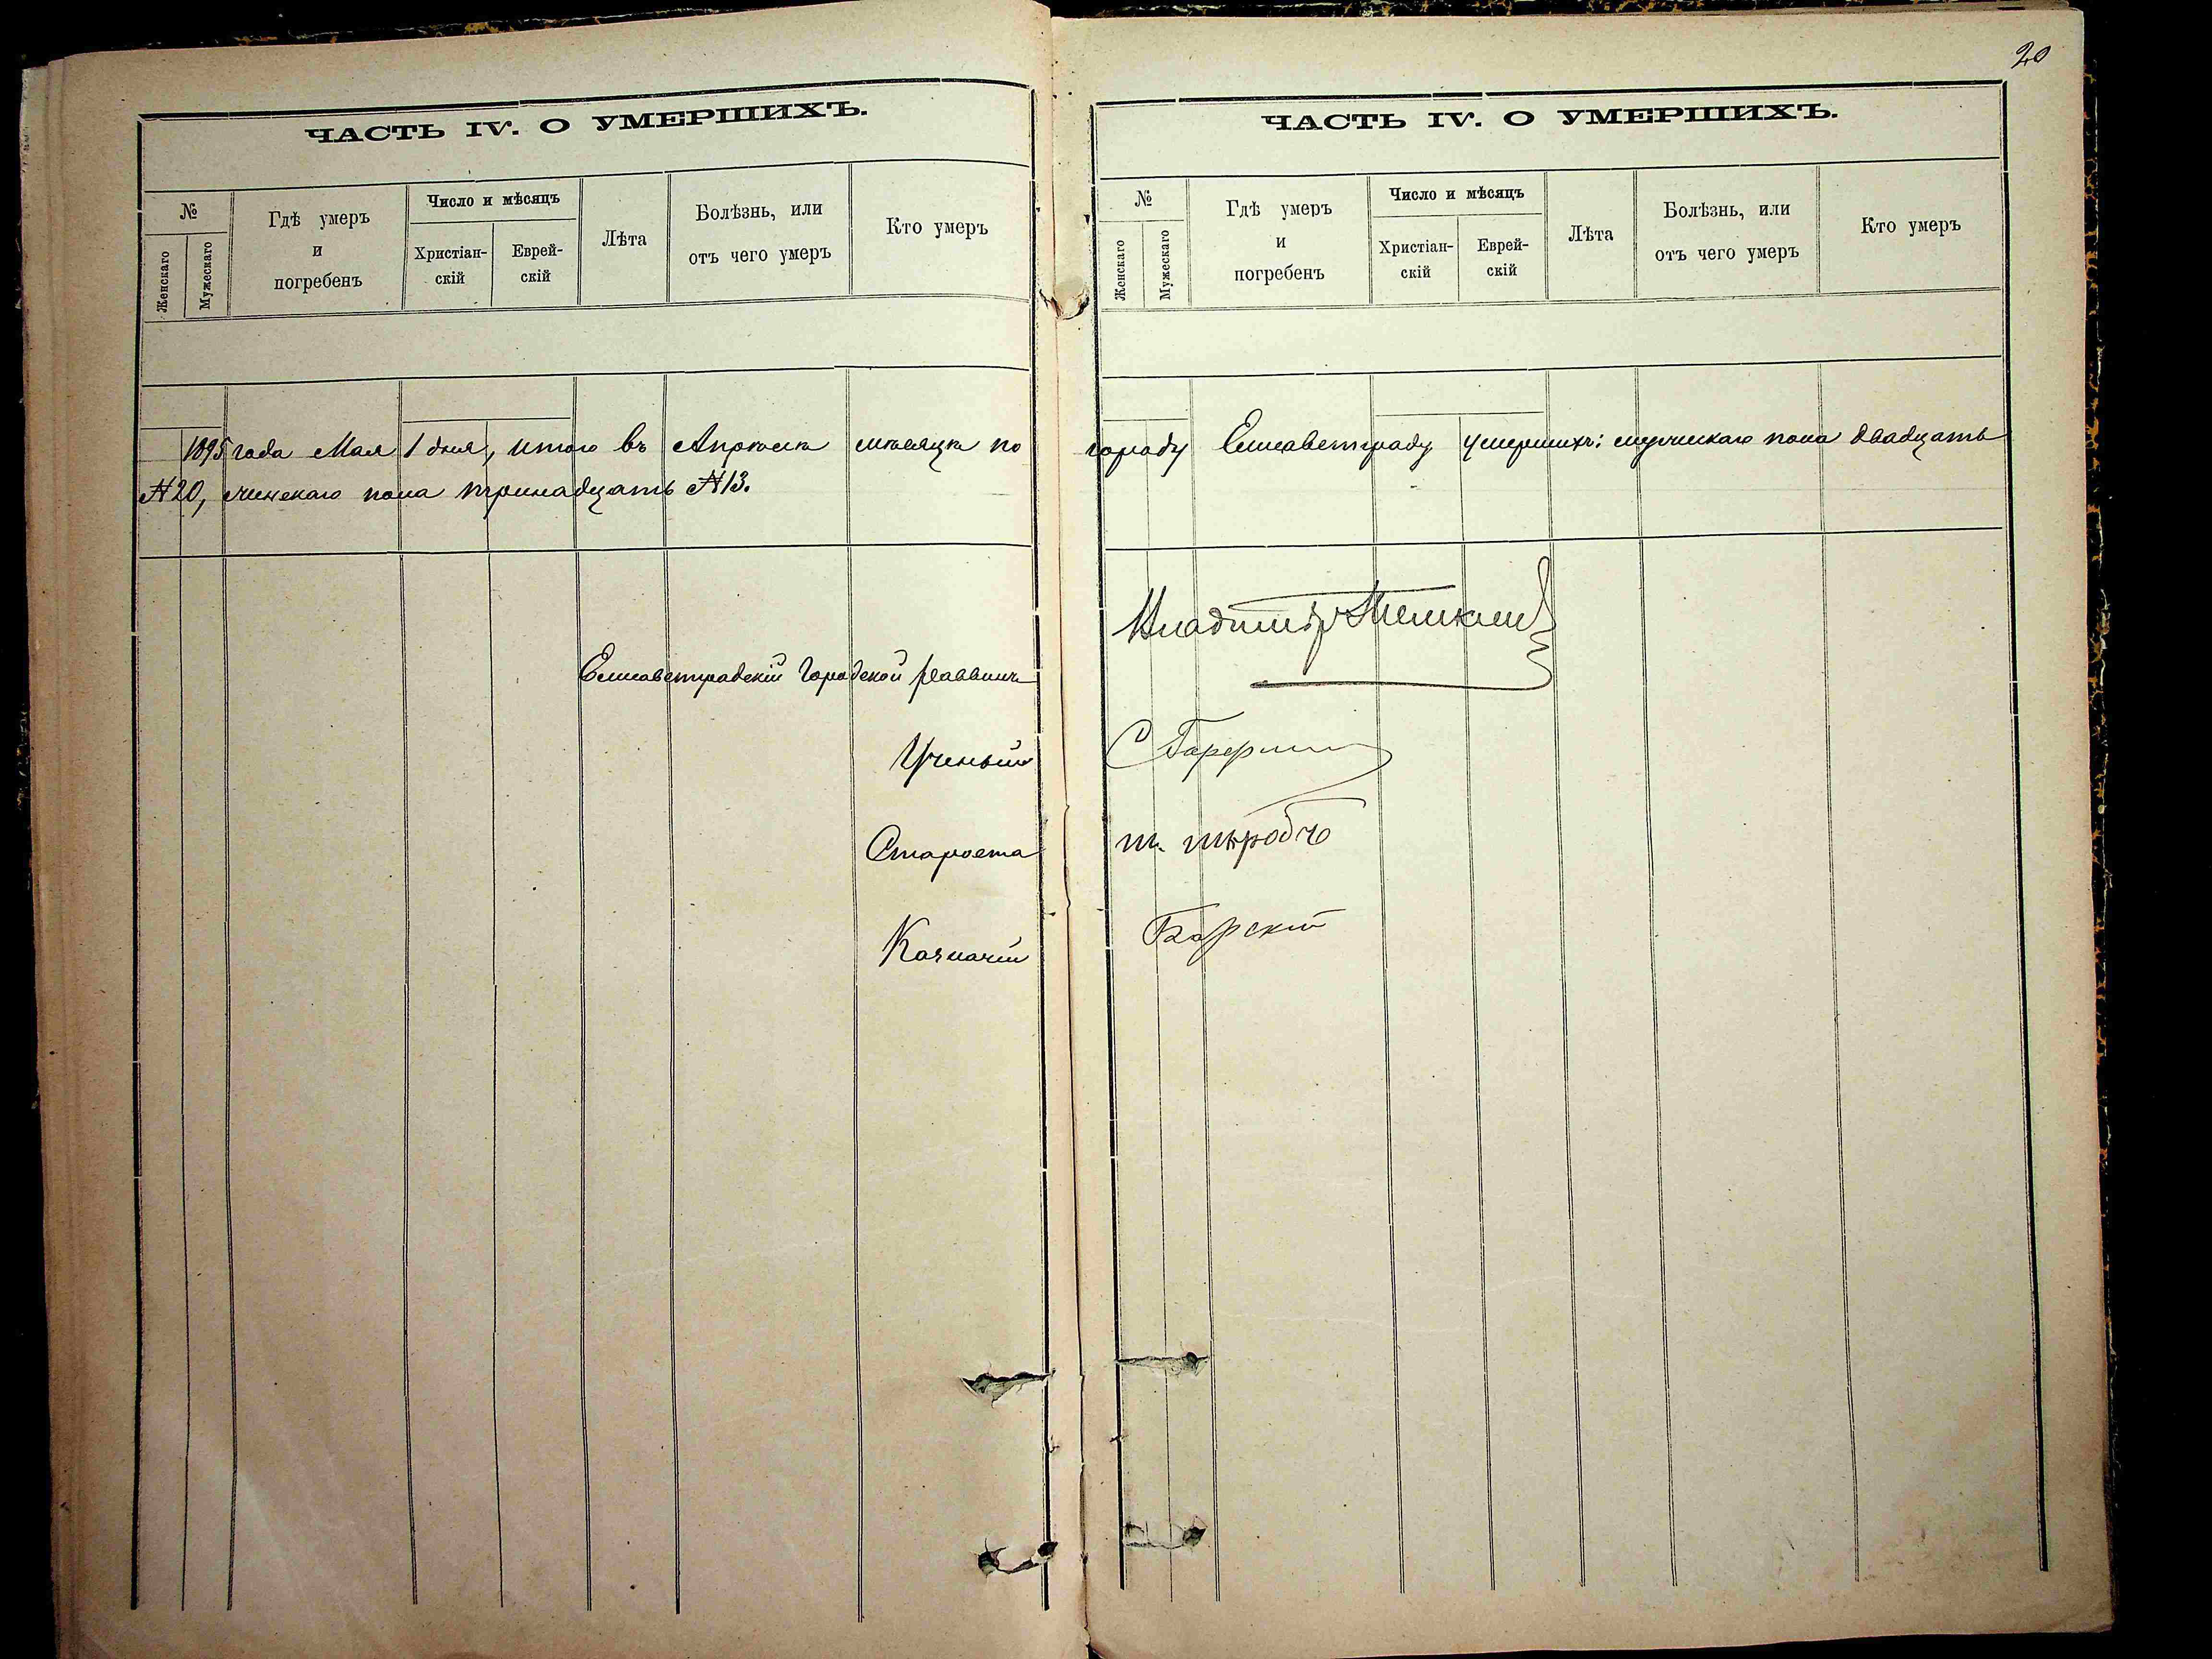 20
ЧАСТЬ IV. О УМЕРШИХЪ.
№
Женскаго
Мужескаго
Гдѣ умеръ
и
погребенъ
Число и мѣсяцъ
Христіан-
скій
Еврей-
скій
Лѣта
Болѣзнь, или
отъ чего умеръ
Кто умеръ
ЧАСТЬ IV. О УМЕРШИХЪ.
№
Женскаго
Мужескаго
Гдѣ умеръ
и
погребенъ
Число и мѣсяцъ
Христіан-
скій
Еврей-
скій
Лѣта
Болѣзнь, или
отъ чего умеръ
Кто умеръ
1895 года Мая 1 дня, итого въ Апрѣлѣ мѣсяцѣ по городу Елисаветграду умершихъ: мужескаго пола двадцать
№ 20, женскаго пола тринадцать № 13.
Елисаветградскій Городской Раввинъ Владимір
Ученый С
Староста
Казначей Барскій